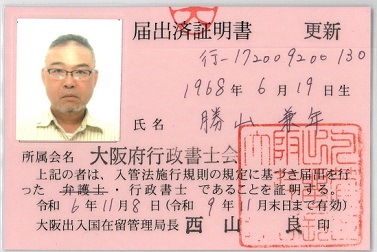 届出済証明書 更新
行-172009200130
1968年6月19日生
氏名 勝山 兼年
所属会名 大阪府行政書士会
上記の者は、入管法施行規則の規定に基づき届出を行
った 弁護士・行政書士 であることを証明する。
令和 6年 11月 8日(令和 9年 11月末日まで有効)
大阪出入国在留管理局長 西山 良 印